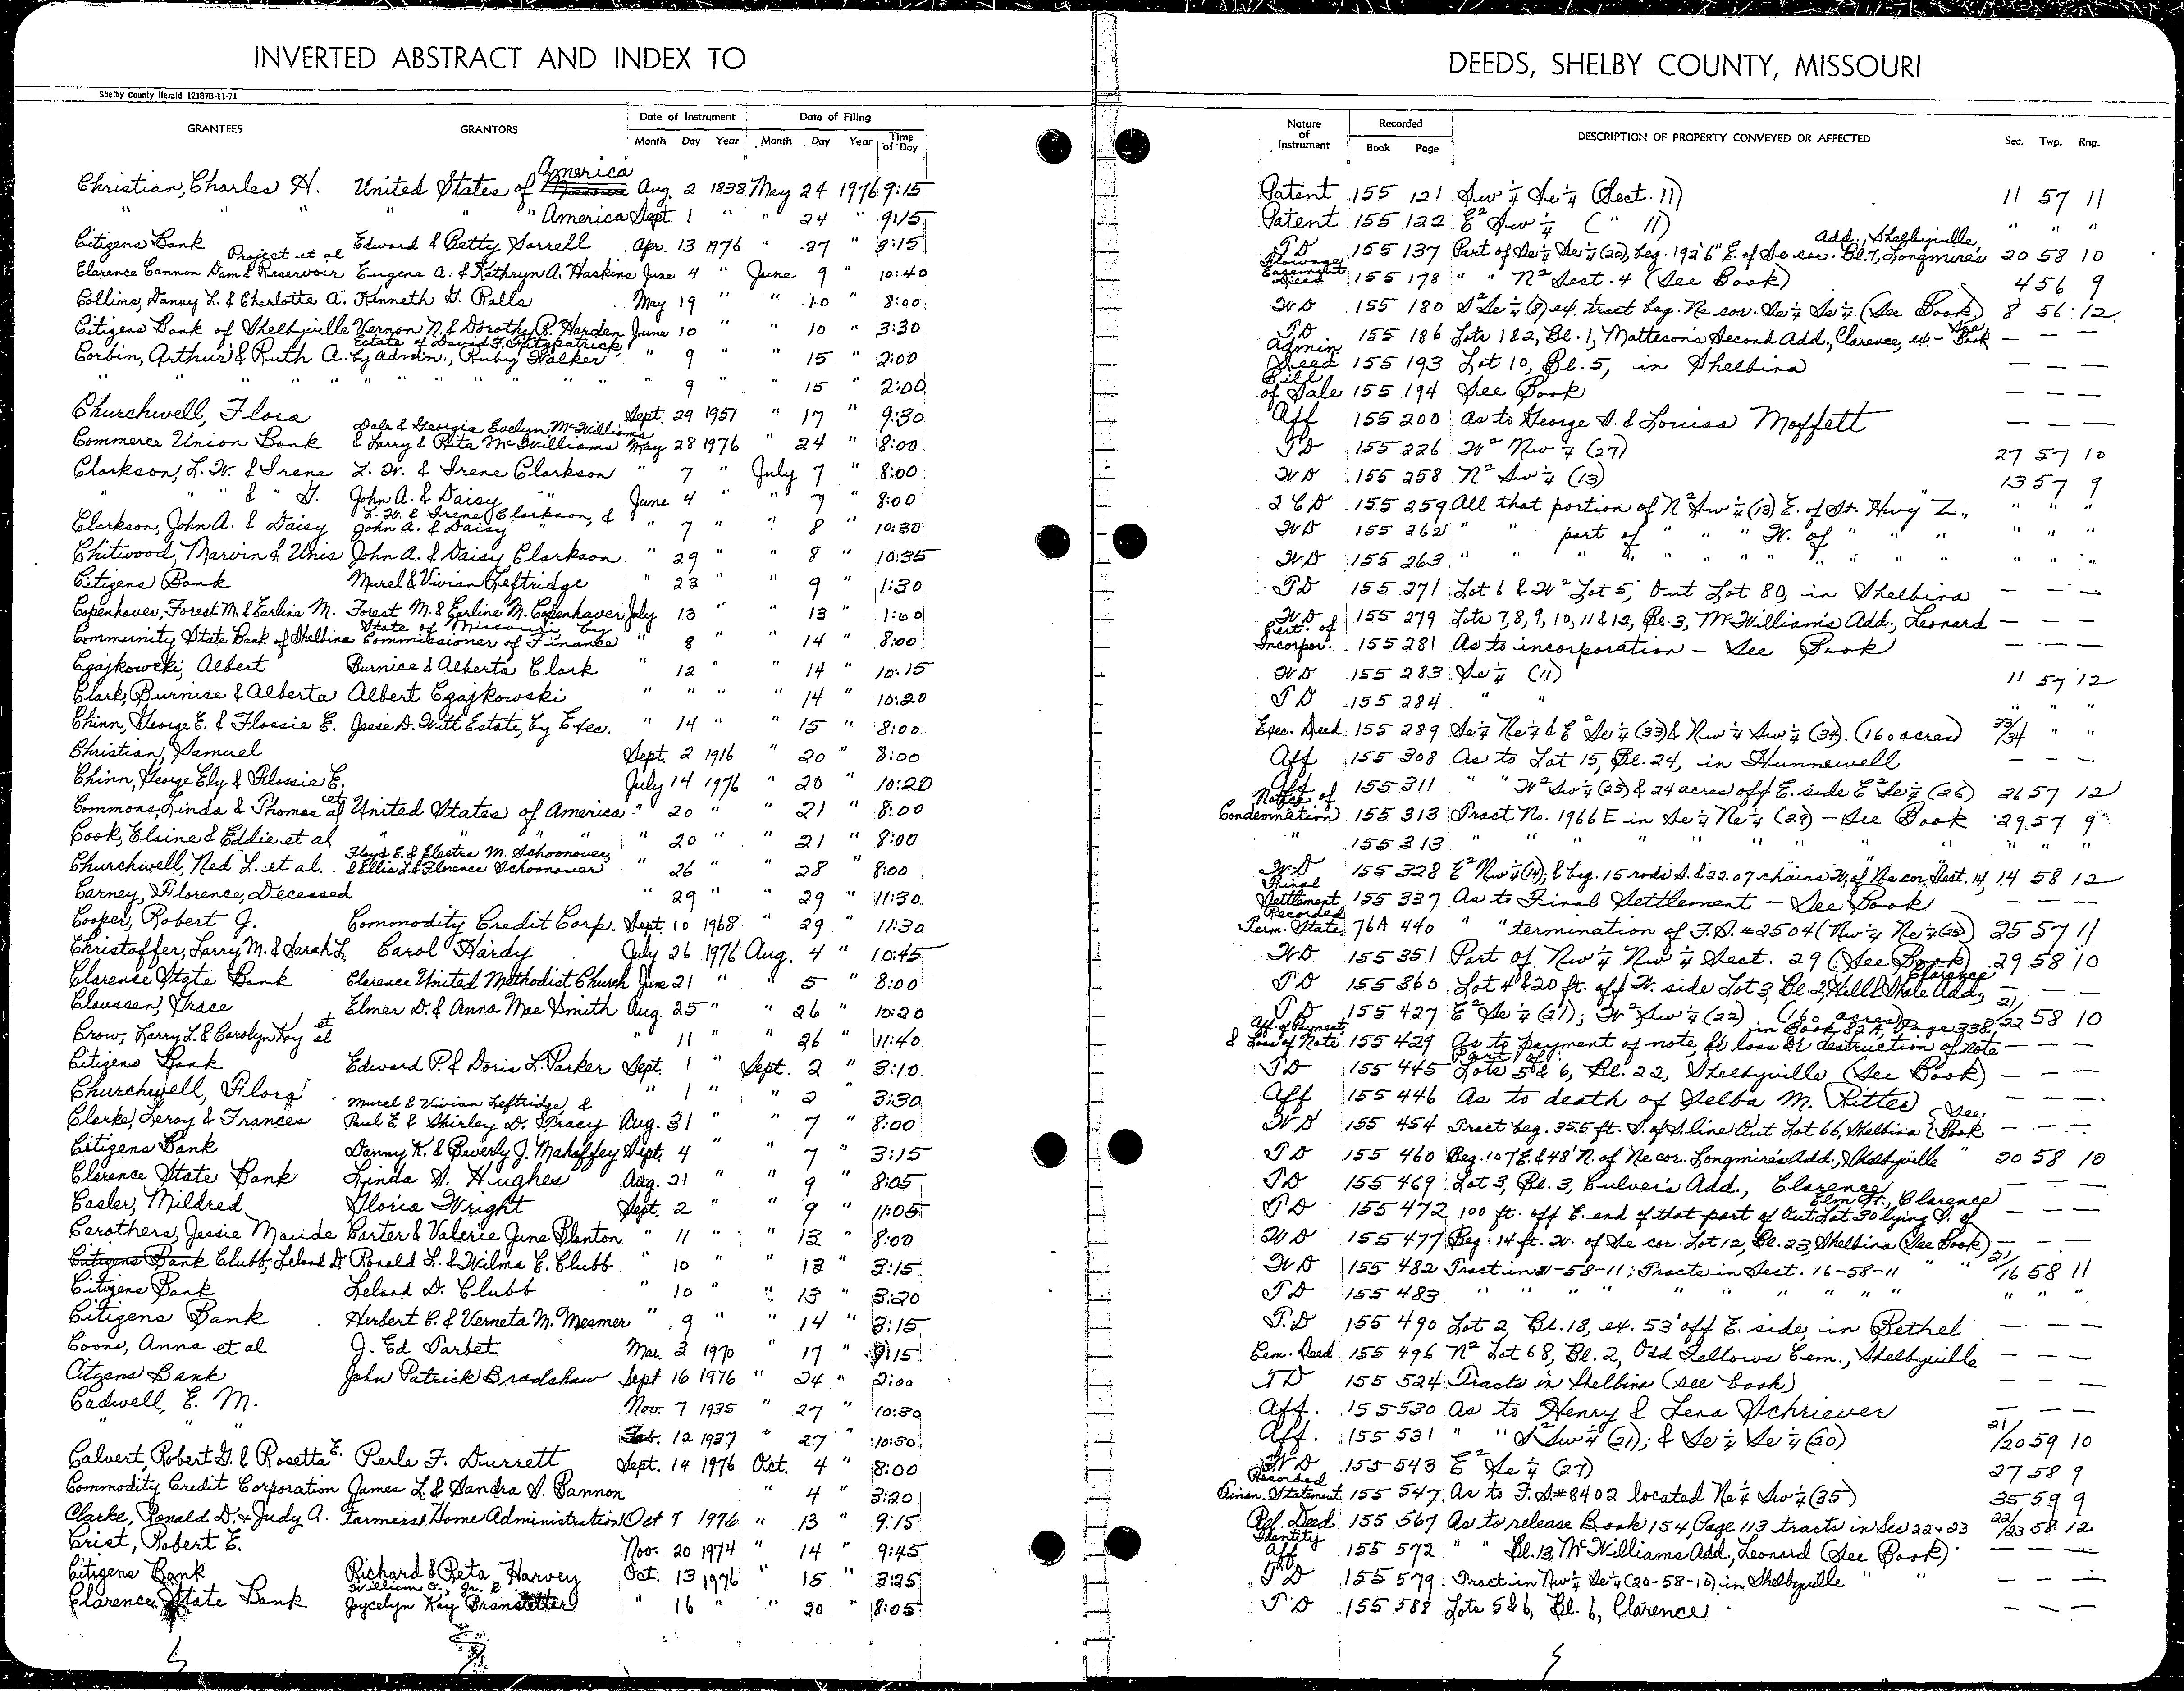 INVERTED ABSTRACT AND INDEX TO
DEEDS, SHELBY COUNTY, MISSOURI
Shelby County Herald 12187B-11-71
GRANTEES GRANTORS Date of Instrument Month Day Year Date of Filing Month Day Year Time of Day
Nature of Instrument Recorded Book Page DESCRIPTION OF PROPERTY CONVEYED OR AFFECTED Sec. Twp. Rng.
Christian, Charles H. United States of America Aug. 2 1838 May 24 1976 9:15 Patent 155 121 Sw ¼ Se ¼ (Sect. 11) 11 57 11
" " " " " America Sept 1 " " 24 " 9:15 Patent 155 122 E² Sw ¼ ( " 11) " " "
Citizens Bank Edward & Betty Sorrell Apr. 13 1976 " 27 " 3:15 TD 155 137 Part of Se ¼ Se ¼ (20), beg. 192'6" E. of Se cor. Bl. 7, Longmire's Add., Shelbyville, 20 58 10
Clarence Cannon Dam & Reservoir Project et al Eugene A. & Kathryn A. Haskins June 4 " June 9 " 10:40 Flowage Easement Deed 155 178 " " N² Sect. 4 (See Book) 4 56 9
Collins, Danny L. & Charlotte A. Kenneth G. Ralls May 19 " " 10 " 8:00 WD 155 180 S² Se ¼ (8) ex. tract beg. Ne cor. Se ¼ Se ¼ (See Book) 8 56 12
Citizens Bank of Shelbyville Vernon N. & Dorothy R. Harden June 10 " " 10 " 3:30 TD 155 186 Lots 1 & 2, Bl. 1, Matteson's Second Add., Clarence, ex. - See Book — —
Corbin, Arthur & Ruth A. Estate of David F. Fitzpatrick by admin., Ruby Walker " 9 " " 15 " 2:00 Admin. Deed 155 193 Lot 10, Bl. 5, in Shelbina — — —
" " " " " " " " " 9 " " 15 " 2:00 Bill of Sale 155 194 See Book — — —
Churchwell, Flora Sept. 29 1951 " 17 " 9:30 Aff 155 200 as to George S. & Louisa Moffett — — —
Commerce Union Bank Dale & Georgia Evelyn McWilliams & Larry & Rita McWilliams May 28 1976 " 24 " 8:00 TD 155 226 W² Nw ¼ (27) 27 57 10
Clarkson, L. W. & Irene L. W. & Irene Clarkson " 7 " July 7 " 8:00 WD 155 258 N² Sw ¼ (13) 13 57 9
" " " & " G. John A. & Daisy " June 4 " " 7 " 8:00 2 CD 155 259 All that portion of N² Sw ¼ (13) E. of St. Hwy Z., " " "
Clarkson, John A. & Daisy L. W. & Irene Clarkson, & John A. & Daisy " " 7 " " 8 " 10:30 WD 155 262 " " part of " " " W. of " " " " " "
Chitwood, Marvin & Unis John A. & Daisy Clarkson " 29 " " 8 " 10:35 WD 155 263 " " " " " " " " " " " " " "
Citizens Bank Murel & Vivian Leftridge " 23 " " 9 " 1:30 TD 155 271 Lot 6 & W² Lot 5, Out Lot 80, in Shelbina — — —
Copenhaver, Forest M. & Earline M. Forest M. & Earline M. Copenhaver July 13 " " 13 " 1:00 WD 155 279 Lots 7, 8, 9, 10, 11 & 12, Bl. 3, McWilliam's Add., Leonard — — —
Community State Bank of Shelbina State of Missouri by Commissioner of Finance " 8 " " 14 " 8:00 Cert. of Incorpor. 155 281 As to incorporation - See Book — — —
Czajkowski, Albert Burnice & Alberta Clark " 12 " " 14 " 10:15 WD 155 283 Se ¼ (11) 11 57 12
Clark, Burnice & Alberta Albert Czajkowski " " " " 14 " 10:20 TD 155 284 " " " " "
Chinn, George E. & Flossie E. Jessie D. Witt Estate, by Exec. " 14 " " 15 " 8:00 Exec. Deed 155 289 Se ¼ Ne ¼ & E² Se ¼ (33) & Nw ¼ Sw ¼ (34). (160 acres) 33/34 " "
Christian, Samuel Sept. 2 1916 " 20 " 8:00 Aff 155 308 As to Lot 15, Bl. 24, in Hunnewell — — —
Chinn, George Ely & Flossie E. July 14 1976 " 20 " 10:20 Aff 155 311 " " W² Sw ¼ (25) & 24 acres off E. side E² Se ¼ (26) 26 57 12
Commons, Linda & Thomas et al United States of America " 20 " " 21 " 8:00 Notice of Condemnation 155 313 Tract No. 1966E in Se ¼ Ne ¼ (29) - See Book 29 57 9
Cook, Elaine & Eddie et al " " " " " 20 " " 21 " 8:00 " 155 313 " " " " " " " " " " "
Churchwell, Ned L. et al. Floyd E. & Electra M. Schoonover, & Ellis L. & Florence Schoonover " 26 " " 28 " 8:00 WD 155 328 E² Nw ¼ (14), & beg. 15 rods S. & 22.07 chains W. of Ne cor. Sect. 14, 14 58 12
Carney, Florence, Deceased " 29 " " 29 " 11:30 Final Settlement 155 337 As to Final Settlement - See Book — — —
Cooper, Robert J. Commodity Credit Corp. Sept. 10 1968 " 29 " 11:30 Recorded Term. State. 76A 440 " " termination of F.S. #2504 (Nw ¼ Ne ¼ (25)) 25 57 11
Christoffer, Larry M. & Sarah L. Carol Hardy July 26 1976 Aug. 4 " 10:45 WD 155 351 Part of Nw ¼ Nw ¼ Sect. 29 (See Book) 29 58 10
Clarence State Bank Clarence United Methodist Church June 21 " " 5 " 8:00 TD 155 360 Lot 4 & 20 ft. off W. side Lot 3, Bl. 2, Hill & Shale Add., Clarence — — —
Claussen, Grace Elmer D. & Anna Mae Smith Aug. 25 " " 26 " 10:20 TD 155 427 E² Se ¼ (21); W² Sw ¼ (22) (160 acres) 21/22 58 10
Crow, Larry L. & Carolyn Kay et al " 11 " 26 " 11:40 Aff. of Payment & Loss of Note 155 429 As to payment of note, & loss or destruction of note in Book 82A, Page 338, — — —
Citizens Bank Edward P. & Doris L. Parker Sept. 1 " Sept. 2 " 3:10 TD 155 445 Part of: Lots 5 & 6, Bl. 22, Shelbyville (See Book) — — —
Churchwell, Flora " 1 " " 2 " 3:30 Aff 155 446 As to death of Selba M. Ritter — — —
Clarke, Leroy & Frances Murel & Vivian Leftridge, & Paul E. & Shirley D. Tracy Aug. 31 " " 7 " 8:00 WD 155 454 Tract beg. 355 ft. S. of S. line Out Lot 66, Shelbina (See Book — — —
Citizens Bank Danny K. & Beverly J. Mahaffey Sept. 4 " " 7 " 3:15 TD 155 460 Beg. 107' E. & 48' N. of Ne cor. Longmire's Add., Shelbyville " 20 58 10
Clarence State Bank Linda S. Hughes Aug. 31 " " 9 " 8:05 TD 155 469 Lot 3, Bl. 3, Culver's Add., Clarence — — —
Casler, Mildred Gloria Wright Sept. 2 " " 9 " 11:05 TD 155 472 100 ft. off E. end of that part of Out Lot 30 lying S. of Elm St., Clarence — — —
Carothers, Jessie Maride Carter & Valerie June Blanton " 11 " " 13 " 8:00 WD 155 477 Beg. 14 ft. W. of Se cor. Lot 12, Bl. 23, Shelbina (See Book) — — —
Citizens Bank Clubb, Leland D. Ronald L. & Wilma E. Clubb " 10 " " 13 " 3:15 WD 155 482 Tract in 21-58-11; Tracts in Sect. 16-58-11 " " 21/16 58 11
Citizens Bank Leland D. Clubb " 10 " " 13 " 3:20 TD 155 483 " " " " " " " " " " "
Citizens Bank Herbert C. & Verneta M. Mesmer " 9 " " 14 " 3:15 T.D 155 490 Lot 2, Bl. 18, ex. 53' off E. side, in Bethel — — —
Coons, Anna et al J. Ed Tarbet Mar. 3 1970 " 17 " 9:15 Cem. Deed 155 496 N² Lot 68, Bl. 2, Odd Fellows Cem., Shelbyville — — —
Citzens Bank John Patrick Bradshaw Sept 16 1976 " 24 " 2:00 TD 155 524 Tracts in Shelbina (see book) — — —
Cadwell, E. M. Nov. 7 1935 " 27 " 10:30 Aff. 155 530 As to Henry & Lena Schriever — — —
" " Feb. 12 1937 " 27 " 10:30 Aff. 155 531 " " S² Sw ¼ (21); & Se ¼ Se ¼ (20) 21/20 59 10
Calvert, Robert G. & Rosetta E. Perle F. Durrett Sept. 14 1976 Oct. 4 " 8:00 WD 155 543 E² Se ¼ (27) 27 58 9
Commodity Credit Corporation James L. & Sandra S. Bannon " 4 " 3:20 Recorded Finan. Statement 155 547 As to F.S. #8402 located Ne ¼ Sw ¼ (35) 35 59 9
Clarke, Ronald D. & Judy A. Farmers Home Administration Oct 7 1976 " 13 " 9:15 Rel. Deed 155 567 As to release Book 154, Page 113 tracts in Sec 22 + 23 22/23 58 12
Crist, Robert E. Nov. 20 1974 " 14 " 9:45 Identity Aff 155 572 " " Bl. 13, McWilliams Add., Leonard (See Book) — — —
Citizens Bank Richard & Reta Harvey Oct. 13 1976 " 15 " 3:25 TD 155 579 Tract in Nw ¼ Se ¼ (20-58-10) in Shelbyville " " — — —
Clarence State Bank William O., Jr. & Joycelyn Kay Branstetter " 16 " " 20 " 8:05 TD 155 588 Lots 5 & 6, Bl. 6, Clarence — — —